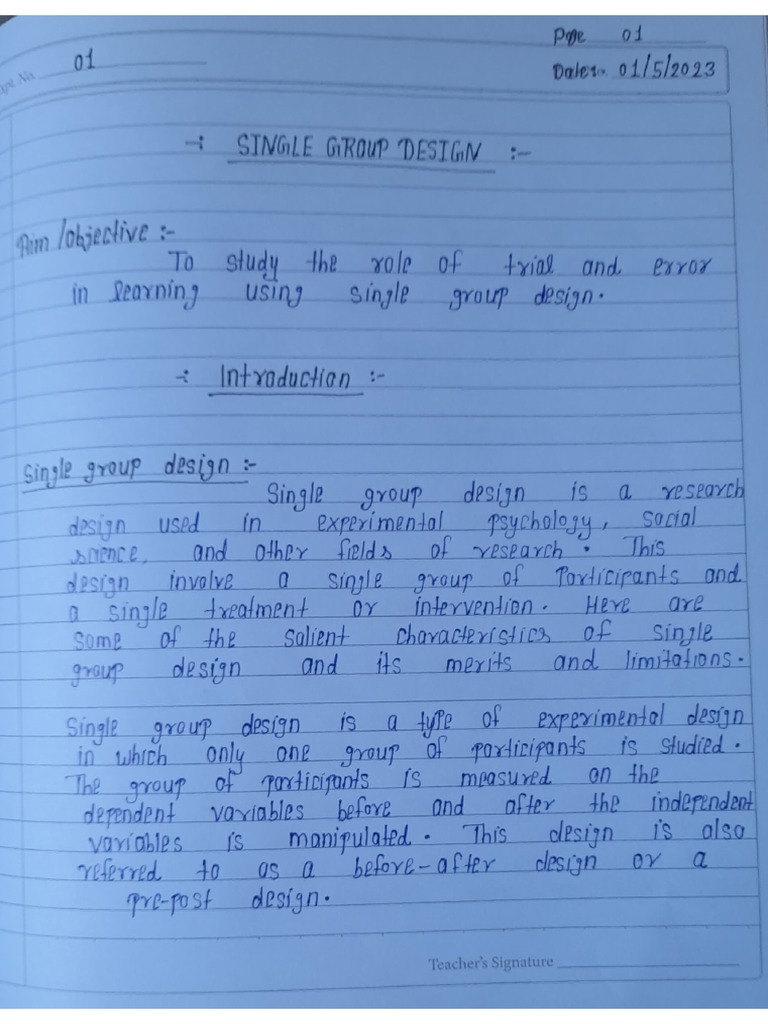 Page 01
Expt. No. 01
Date:. 01/5/2023
-: SINGLE GROUP DESIGN :-
Aim /objective :-
To study the role of trial and error
in learning using single group design.
-: Introduction :-
Single group design :-
Single group design is a research
design used in experimental psychology, social
science, and other fields of research. This
design involve a single group of Participants and
a single treatment or intervention. Here are
some of the salient characteristics of single
group design and its merits and limitations.
Single group design is a type of experimental design
in which only one group of participants is studied.
The group of participants is measured on the
dependent variables before and after the independent
variables is manipulated. This design is also
referred to as a before-after design or a
pre-post design.
Teacher's Signature